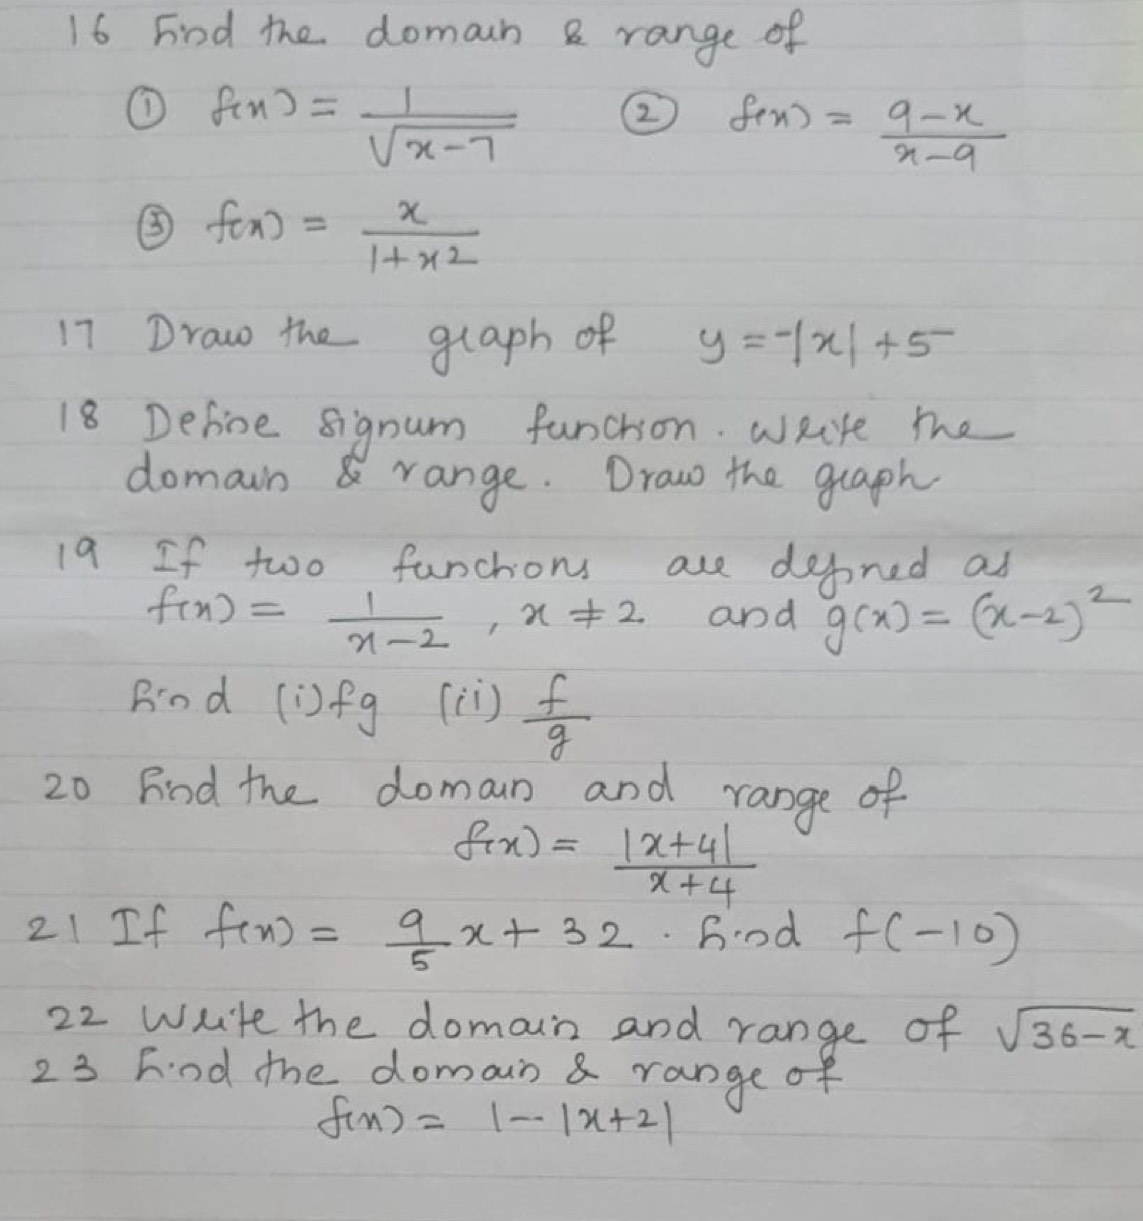 16 Find the domain & range of
① f(x) = 1/√(x-7) ② f(x) = (9-x)/(x-9)
③ f(x) = x/(1+x2)
17 Draw the graph of y = -|x| + 5
18 Define signum function. Write the
domain & range. Draw the graph
19 If two functions are defined as
f(x) = 1/(x-2), x ≠ 2 and g(x) = (x-2)²
find (i) fg (ii) f/g
20 find the domain and range of
f(x) = |x+4|/(x+4)
21 If f(x) = 9/5 x + 32. find f(-10)
22 Write the domain and range of √(36-x
23 find the domain & range of
f(x) = 1-|x+2|